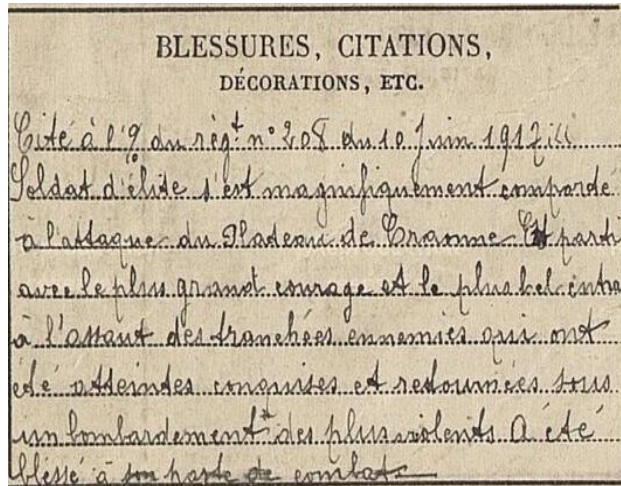 BLESSURES, CITATIONS,
DÉCORATIONS, ETC.
Cité à l'O du règt n° 208 du 10 Juin 1917 :"
Soldat d'élite s'est magnifiquement comporté
à l'attaque du Plateau de Craonne Est parti
avec le plus grand courage et le plus bel entra
à l'assaut des tranchées ennemies qui ont
été atteintes conquises et retournées sous
un bombardement des plus violents A été
blessé à son poste de combat